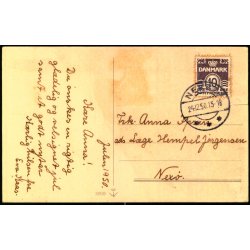 Julen 1950.
Kære Anna!
Du ønskes en rigtig
glædelig og velsignet jul
samt et godt nytår
Kærlig hilsen fra
Eva
DANMARK
10
NEXØ
Frk. Anna
ads. Læge Hempel Jørgensen
Nexø.